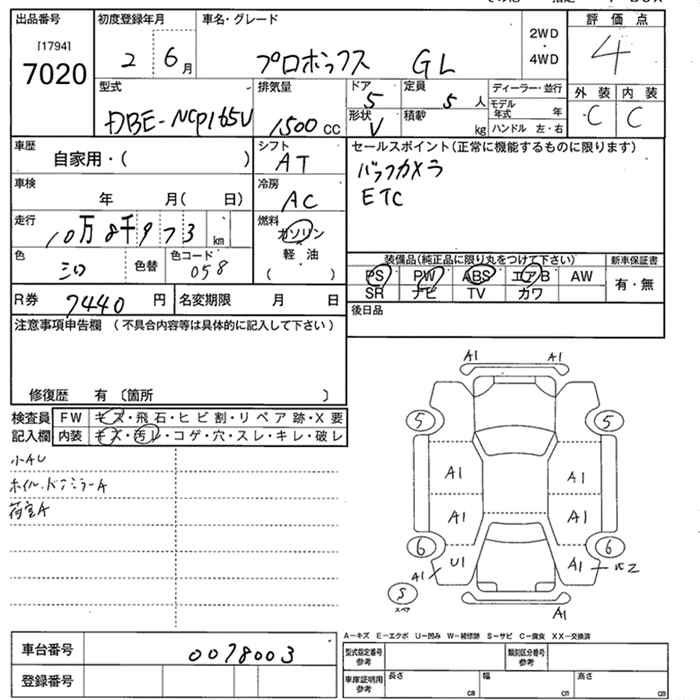 出品番号 初度登録年月 車名・グレード 評価点
[1794]
7020
2 6月 プロボックス GL
2WD
・
4WD
4
型式 排気量 ドア 定員 ディーラー・並行 外装 内装
DBE-NCP165V 1500cc 5 5人
モデル年式 年
C C
形状 積載
V kg ハンドル 左・右
車歴 シフト セールスポイント(正常に機能するものに限ります)
自家用・( ) AT
バックカメラ
ETC
車検 冷房
年 月( 日) AC
走行 燃料
10万8千973km ガソリン
軽油
( )
色 色替 色コード
シロ 058
装備品(純正品に限り丸をつけて下さい) 新車保証書
PS PW ABS エアB AW 有・無
SR ナビ TV カワ
R券 7440円 名変期限 月 日
後日品
注意事項申告欄(不具合内容等は具体的に記入して下さい)
修復歴 有〔箇所 〕
検査員 FW キズ・飛石・ヒビ割・リペア跡・X要
記入欄 内装 キズ・汚レ・コゲ・穴・スレ・キレ・破レ
小AU
ホイル、ドアミラーA
荷室A
A1 A1
5 5
A1 A1
A1 A1
6 6
U1 A1
A1
S
スペア
A1
A-キズ E-エクボ U-凹み W-補修跡 S-サビ C-腐食 XX-交換済
車台番号 0078003
登録番号
型式指定番号 参考 類別区分番号 参考
車庫証明用 参考 長さ cm 幅 cm 高さ cm